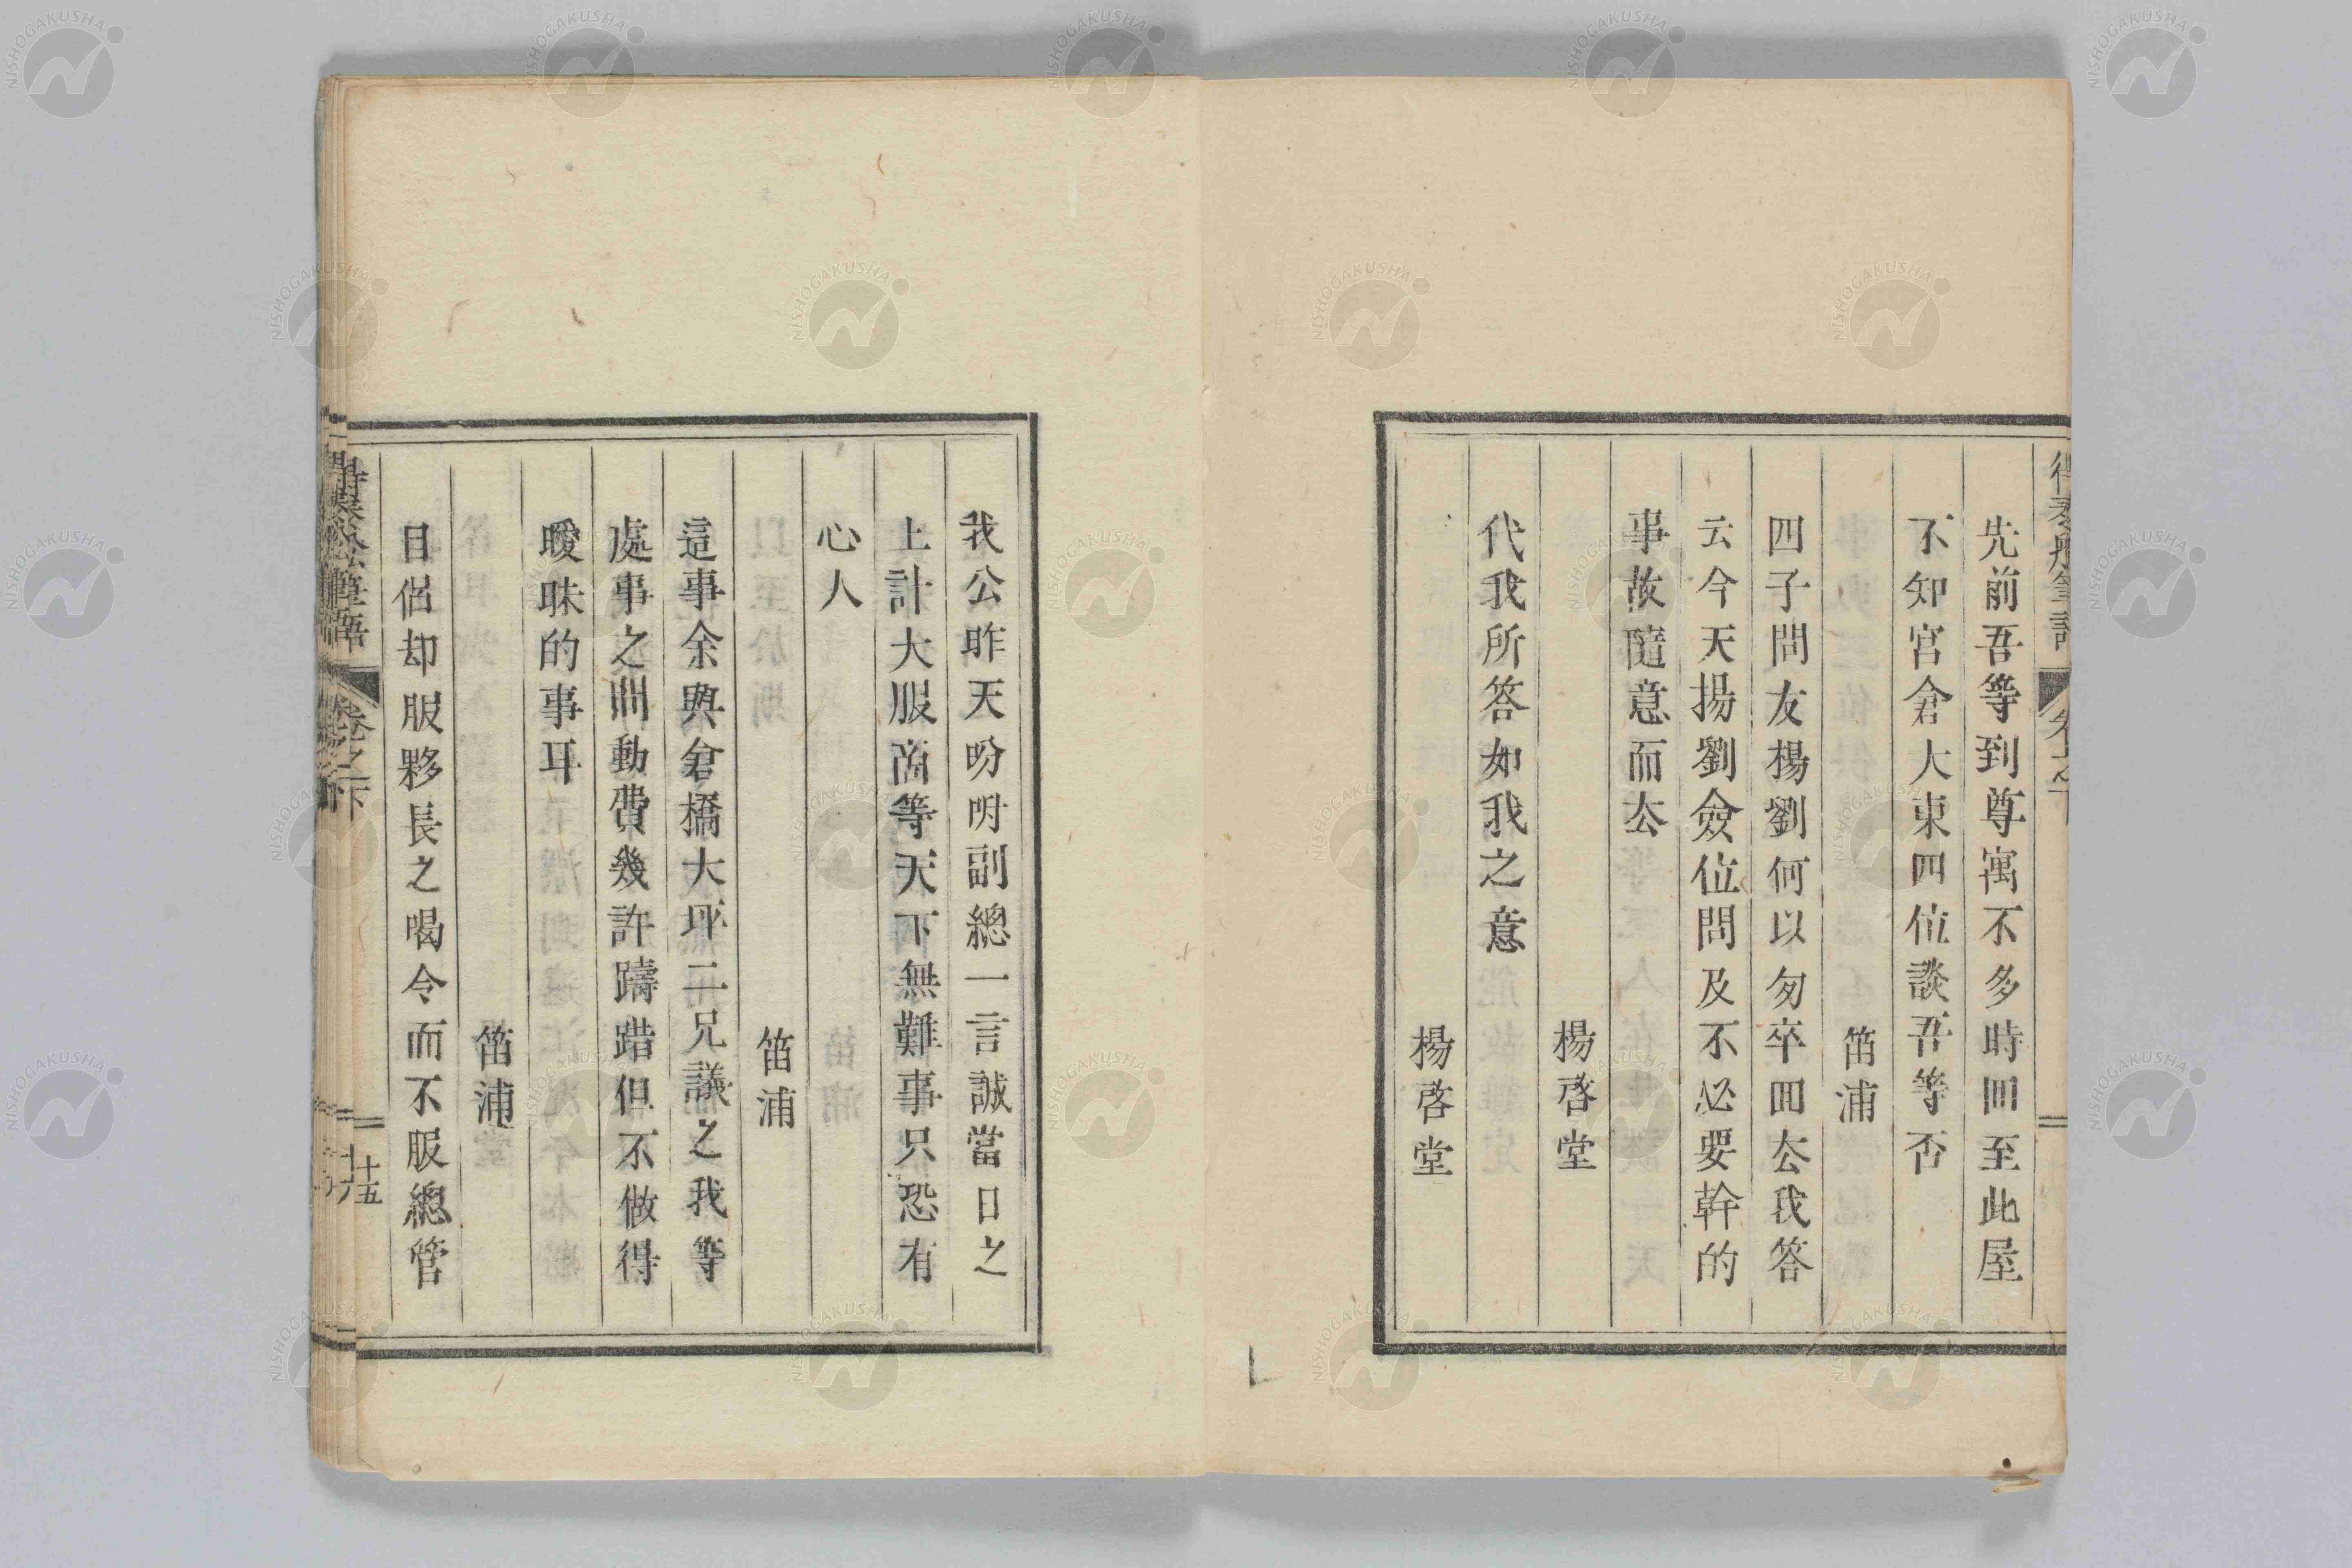 先前吾等到尊寓不多時囬至此屋
不知宫倉大東四位談吾等否
笛浦
四子問友楊劉何以匆卒囬厺我答
云今天揚劉僉位問及不必要幹的
事故隨意而厺
楊啓堂
代我所答如我之意
楊啓堂
我公昨天吩咐副總一言誠當日之
上計大服啇等天下無難事只恐有
心人
笛浦
這事余與倉橋大坪二兄議之我等
處事之間動費幾許躊躇但不做得
曖昧的事耳
笛浦
目侶却服夥長之喝令而不服總管
得泰船筆語
卷之下
十五
NISHOGAKUSHA